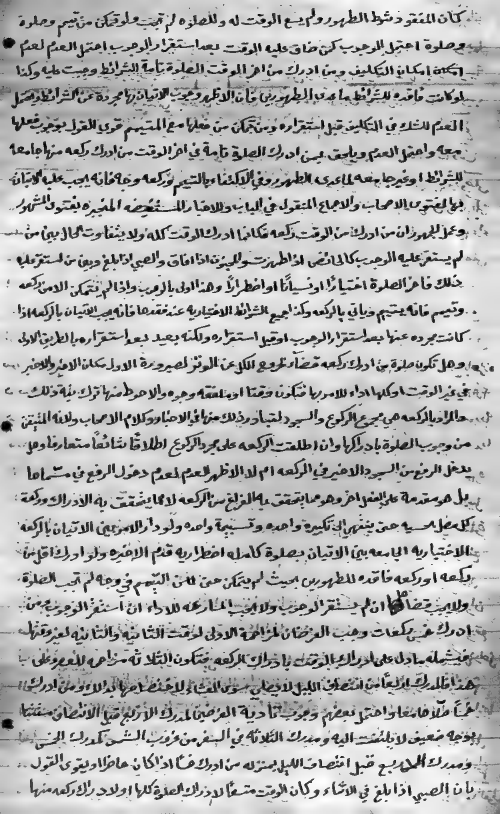 كان المفقود شرط الطهور ولم يسع الوقت له وللصلوة لم تجب ولو تمكن من تيمم وصلوة
وصلوة احتمل الوجوب كمن ضاق عليه الوقت بعد استقرار الوجوب احتمل العدم لعدم
امكان التكليف ومن ادرك من اخر الوقت الصلوة تامة الشرائط وجبت عليه وكذا
لو كانت فاقدة للشرائط ما عدى الطهورين فان الاظهر وجوب الاتيان بها مجردة عن الشرائط
العدم للشك في التكليف قبل استقراره ومن تمكن من فعلها مع المتيمم قوى القول بوجوب فعلها
معه واحتمل العدم ويلحق بمن ادرك الصلوة تامة في اخر الوقت من ادرك ركعة منها جامعة
للشرائط او غير جامعة لما عدى الطهور وفي الاكتفاء بالتيمم لركعة وجه فانه يجب عليه الاتيان
بها لفتوى الاصحاب والاجماع المنقول في الباب وللاخبار المستفيضة المنجبرة بفتوى المشهور
وعمل الجمهور ان من ادرك من الوقت ركعة فكانما ادرك الوقت كله ولا يتفاوت الحال بين من
لم يستقر عليه الوجوب كالحائض اذا طهرت والمجنون اذا افاق والصبي اذا بلغ وبين من استقر عليه
ذلك فاخر الصلوة اختيارا او نسيانا او اضطرارا وهذا اولى بالوجوب واذا لم يتمكن الا من ركعة
وتيمم فانه يتيمم وياتي بالركعة وكذا جميع الشرائط الاختيارية عند فقدها فانه يجب الاتيان بالركعة اذا
كانت مجردة عنها بعد استقرار الوجوب او قبل استقراره ولكنه بعيد بعد استقراره بالطريق الاولى
وهل تكون صلوة من ادرك ركعة قضاء لخروج الكل عن الوقت لصيرورة الاول مكان الاخر والاخير
في غير الوقت او كلها اداء للامر بها فتكون وقتا او ملفقة وجوه والاحوط منها ترك نية ذلك
والمراد بالركعة هي مجموع الركوع والسجود لتبادر ذلك منها في الاخبار وكلام الاصحاب ولانه المتيقن
من وجوب الصلوة بادراكها وان اطلقت الركعة على مجرد الركوع اطلاقا شائعا متعارفا وهل
يدخل الرفع من السجود الاخير في الركعة ام لا الاظهر العدم لعدم دخول الرفع في مسماها
بل هو مقدمة على الفعل اخر وهو مما يتحقق به الفراغ من الركعة لا مما يتحقق به الادراك وركعة
كل مصل بحسبه حتى ينتهي الى تكبيرة واحدة وتسبيحة واحدة ولو دار الامر بين الاتيان بالركعة
الاختيارية الجامعة بين الاتيان بصلوة كاملة اضطرارية قدم الاخيرة ولو ادرك اقل من
ركعة او ركعة فاقدة للطهورين بحيث لم يتمكن حتى من التيمم في وجه لم تجب الصلوة
ولا يجب قضاؤها ان لم يستقر الوجوب ولا يجب المسارعة للاداء ان استقر الوجوب ومن
ادرك خمس ركعات وجب الفرضان لمزاحمة الاولى لوقت الثانية والثانية لغير وقتها
فيشمله ما دل على ادراك الوقت بادراك الركعة فتكون الثلاثة مزاحمة للعصر وعلى
هذا فالمدرك اربعا من انتصاف الليل لا يصلي سوى العشاء لاختصاصها بذلك ومن ادرك
خمسا صلاهما معا واحتمل بعضهم وجوب تادية الفرضين لمدرك الاربع قبل الانتصاف مستندا
لوجه ضعيف لا يلتفت اليه ومدرك الثلاثة في السفر من غروب الشمس كمدرك الخمس
ومدرك الاربع قبل انتصاف الليل بمنزلة من ادرك خمسا اذا كان حاضرا ويقوى القول
بان الصبي اذا بلغ في الاثناء وكان الوقت متسعا لادراك الصلوة كلها او لادراك ركعة منها